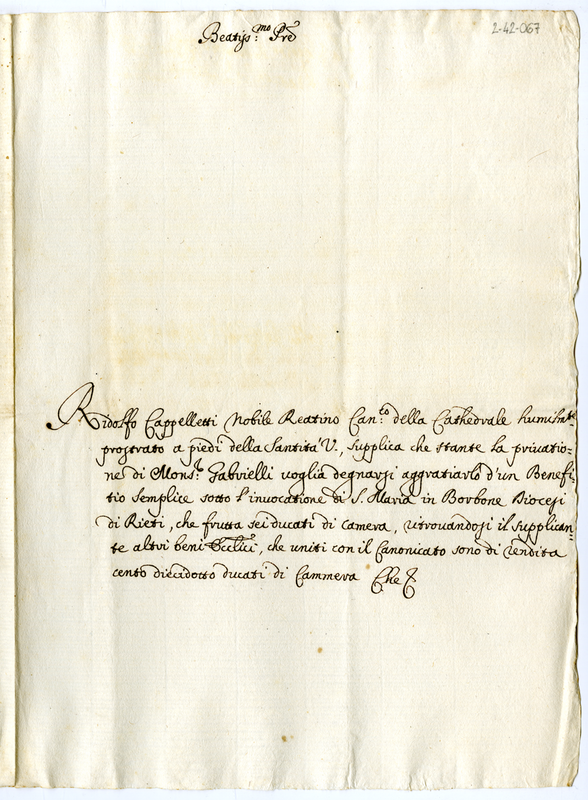 2-42-067
Beatiss:mo Pre
Ridolfo Cappelletti Nobile Reatino Can:co della Cathedrale humilmte
prostrato a piedi della Santita' V., supplica che stante la privatio=
ne di Mons:r Gabrielli voglia degnarsi aggratiarlo d'un Benefi=
tio semplice sotto l'invocatione di S. Maria in Borbone Diocesi
di Rieti, che frutta sei ducati di camera, ritrovandosi il supplican=
te altri beni Eccl:ci, che uniti con il Canonicato sono di rendita
cento diecidotto ducati di Cammera Che